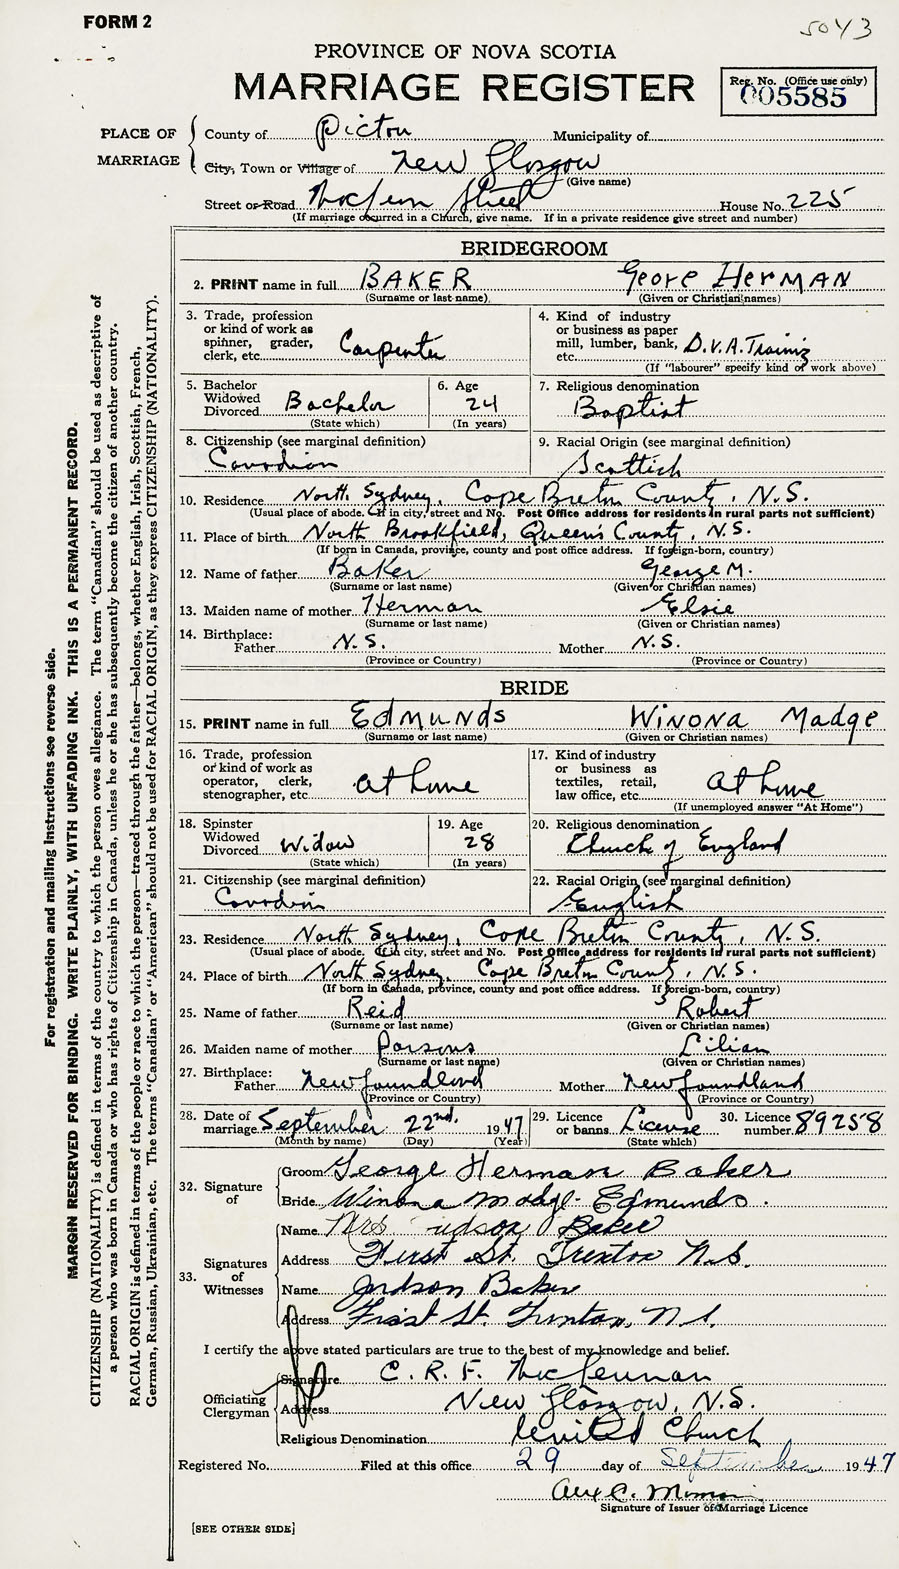 FORM 2
5043
PROVINCE OF NOVA SCOTIA
MARRIAGE REGISTER
Reg. No. (Office use only)
005585
PLACE OF MARRIAGE
County of Pictou Municipality of
City, Town or Village of New Glasgow
(Give name)
Street or Road Street House No. 225
(If marriage occurred in a Church, give name. If in a private residence give street and number)
BRIDEGROOM
2. PRINT name in full BAKER Geore HERMAN
(Surname or last name) (Given or Christian names)
3. Trade, profession or kind of work as spinner, grader, clerk, etc. Carpenter
4. Kind of industry or business as paper mill, lumber, bank, etc. D.V.A. Training
(If "labourer" specify kind of work above)
5. Bachelor Widowed Divorced Bachelor
(State which)
6. Age 24
(In years)
7. Religious denomination
Baptist
8. Citizenship (see marginal definition)
Canadian
9. Racial Origin (see marginal definition)
Scottish
10. Residence North Sydney, Cape Breton County, N.S.
(Usual place of abode. If in city, street and No. Post Office address for residents in rural parts not sufficient)
11. Place of birth North Brookfield, Queen's County, N.S.
(If born in Canada, province, county and post office address. If foreign-born, country)
12. Name of father Baker George M.
(Surname or last name) (Given or Christian names)
13. Maiden name of mother Herman Elsie
(Surname or last name) (Given or Christian names)
14. Birthplace:
Father N.S. Mother N.S.
(Province or Country) (Province or Country)
BRIDE
15. PRINT name in full EDMUNDS WINONA Madge
(Surname or last name) (Given or Christian names)
16. Trade, profession or kind of work as operator, clerk, stenographer, etc. at home
17. Kind of industry or business as textiles, retail, law office, etc. at home
(If unemployed answer "At Home")
18. Spinster Widowed Divorced Widow
(State which)
19. Age 28
(In years)
20. Religious denomination
Church of England
21. Citizenship (see marginal definition)
Canadian
22. Racial Origin (see marginal definition)
English
23. Residence North Sydney, Cape Breton County, N.S.
(Usual place of abode. If in city, street and No. Post Office address for residents in rural parts not sufficient)
24. Place of birth North Sydney, Cape Breton County, N.S.
(If born in Canada, province, county and post office address. If foreign-born, country)
25. Name of father Reid Robert
(Surname or last name) (Given or Christian names)
26. Maiden name of mother Parsons Lilian
(Surname or last name) (Given or Christian names)
27. Birthplace:
Father Newfoundland Mother Newfoundland
(Province or Country) (Province or Country)
28. Date of marriage September 22nd. 1947
(Month by name) (Day) (Year)
29. Licence or banns License
(State which)
30. Licence number 89258
32. Signature of
Groom George Herman Baker
Bride Winona Madge Edmunds.
33. Signatures of Witnesses
Name Mrs Judson Baker
Address First St. Trenton N.S.
Name Judson Baker
Address First St. Trenton, N.S.
I certify the above stated particulars are true to the best of my knowledge and belief.
Officiating Clergyman
Signature C. R. F. MacLennan
Address New Glasgow, N.S.
Religious Denomination United Church
Registered No. Filed at this office 29 day of September 1947
Signature of Issuer of Marriage Licence
[SEE OTHER SIDE]
For registration and mailing instructions see reverse side.
MARGIN RESERVED FOR BINDING. WRITE PLAINLY, WITH UNFADING INK. THIS IS A PERMANENT RECORD.
CITIZENSHIP (NATIONALITY) is defined in terms of the country to which the person owes allegiance. The term "Canadian" should be used as descriptive of
a person who was born in Canada or who has rights of Citizenship in Canada, unless he or she has subsequently become the citizen of another country.
RACIAL ORIGIN is defined in terms of the people or race to which the person—traced through the father—belongs, whether English, Irish, Scottish, French,
German, Russian, Ukrainian, etc. The terms "Canadian" or "American" should not be used for RACIAL ORIGIN, as they express CITIZENSHIP (NATIONALITY).